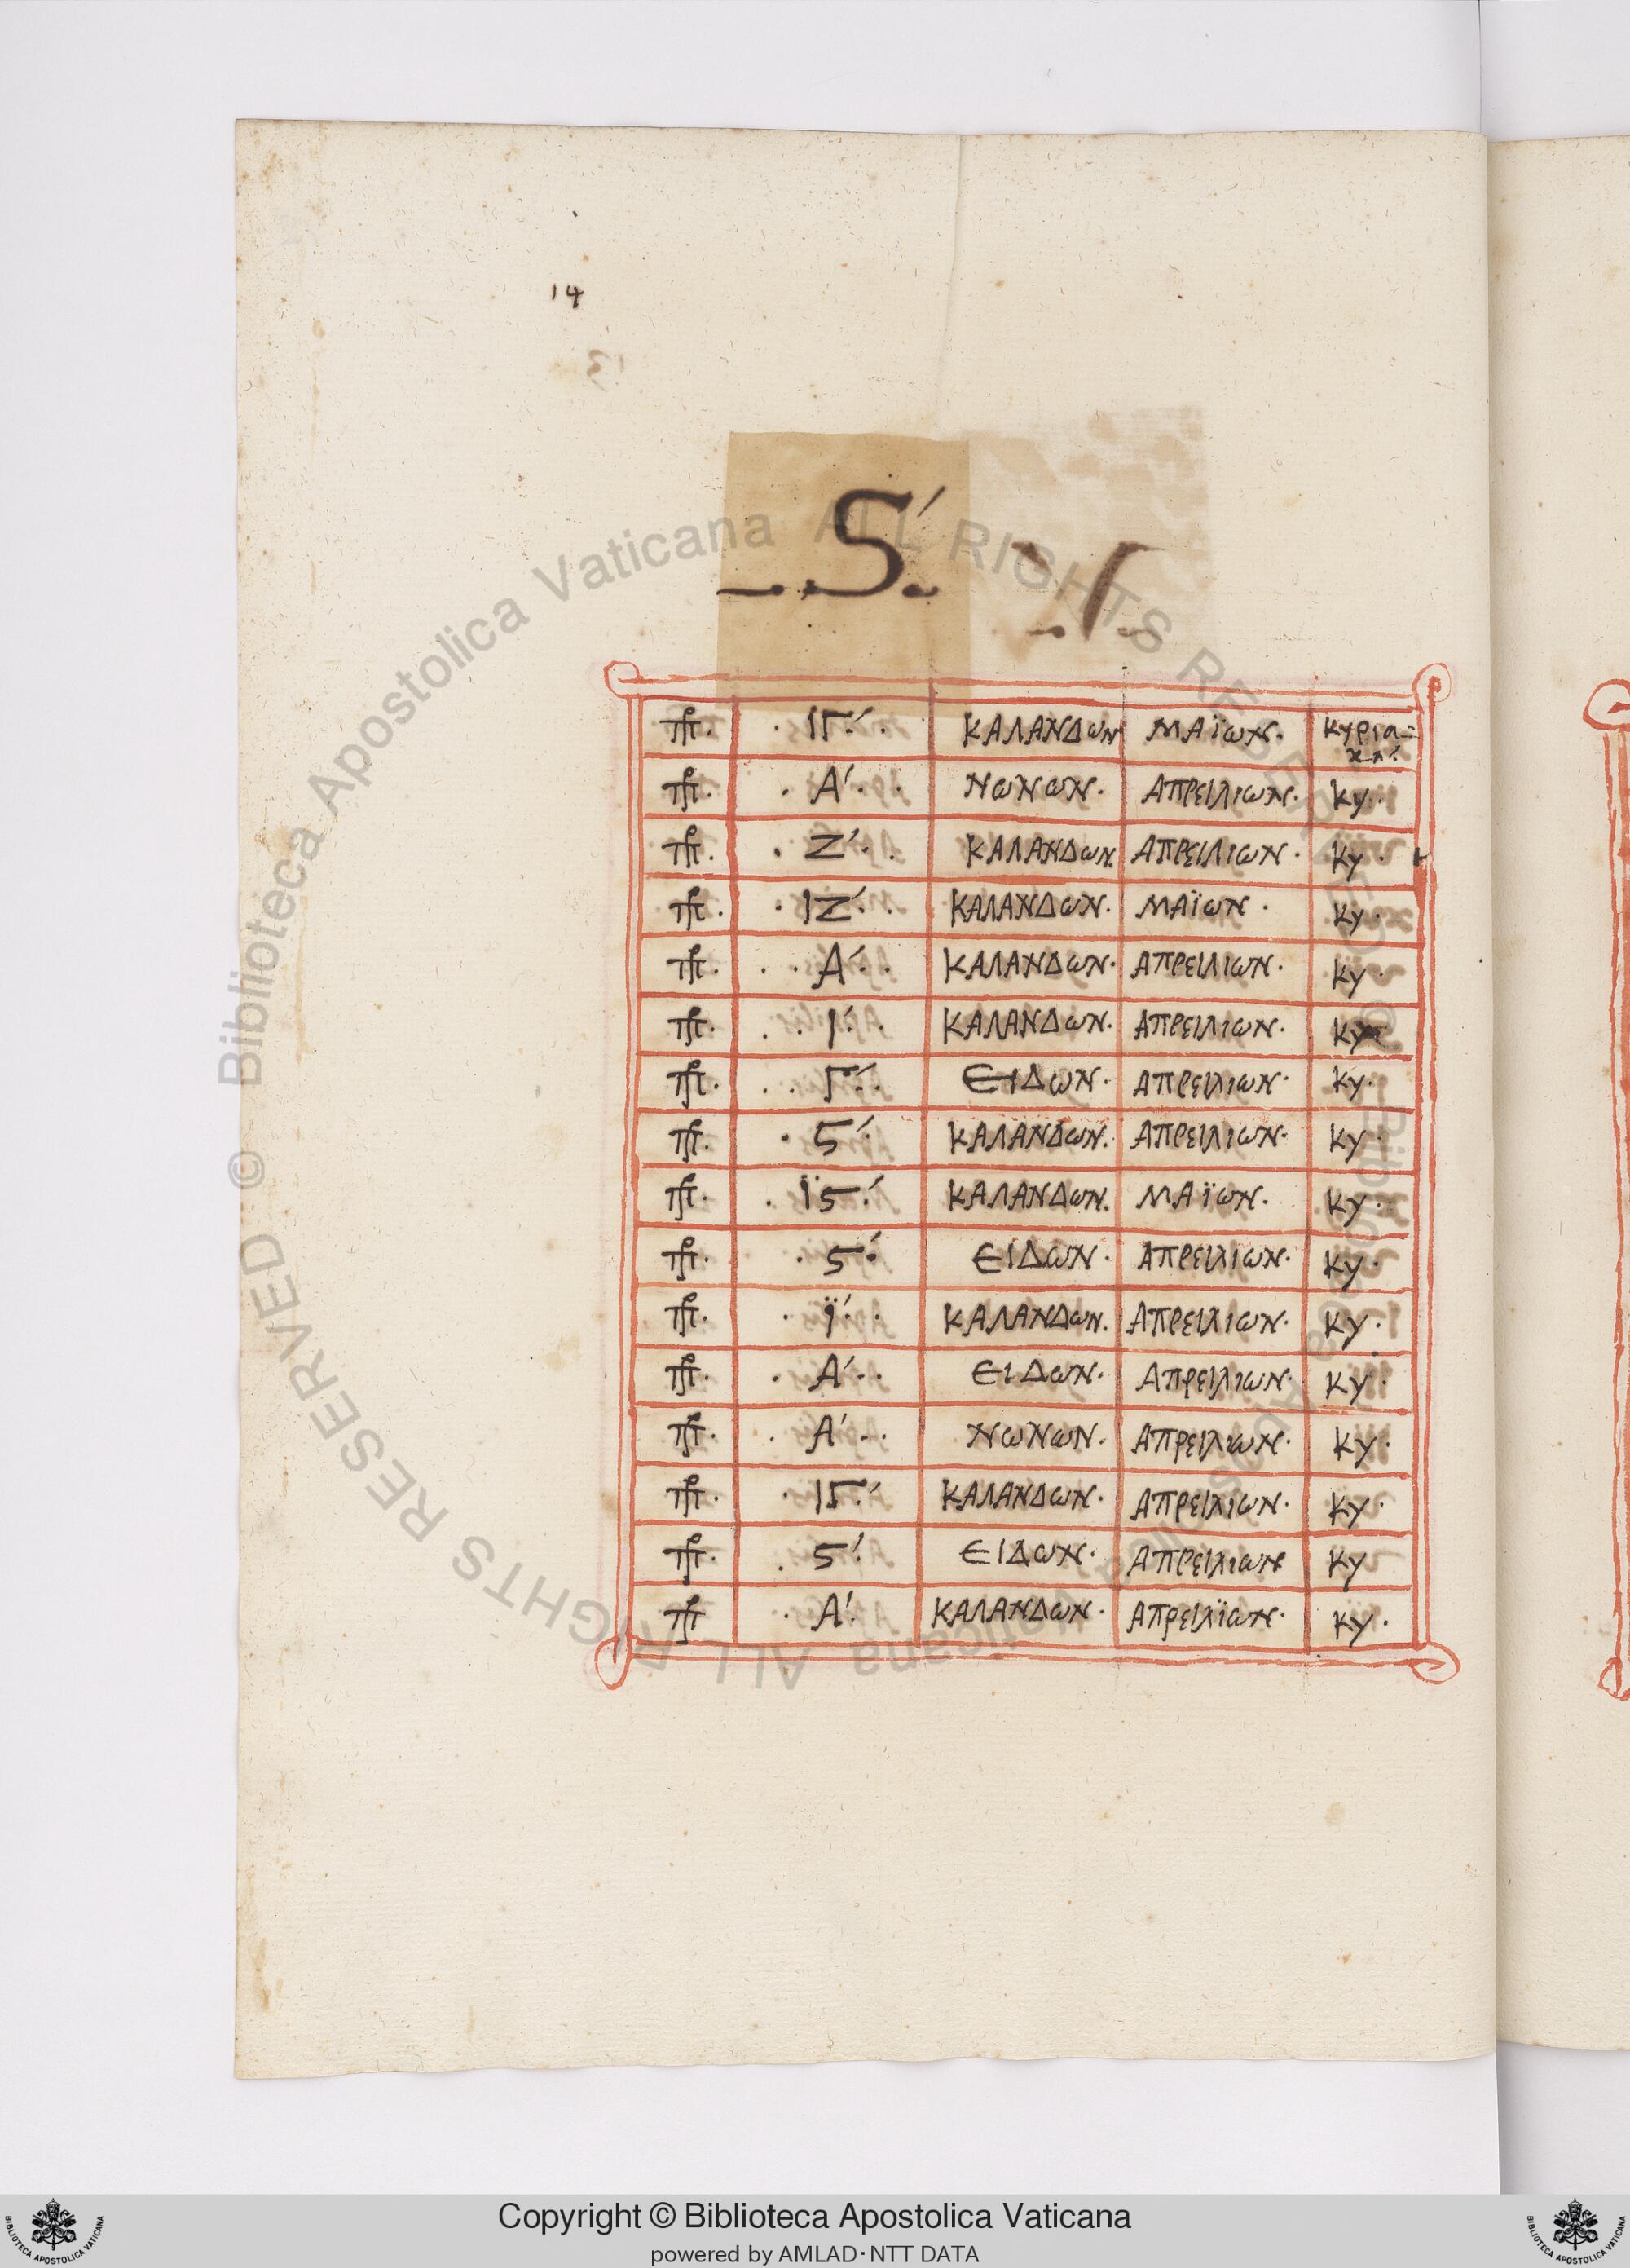 14
ς´
πρ. · ΙΓ´ · ΚΑΛΑΝΔωΝ ΜΑΪωΝ. Κυρια-
κη´.
πρ. · Α´ · · ΝωΝωΝ. ΑΠΡΕΙΛΙωΝ. Κυ.
πρ. · Ζ´ · · ΚΑΛΑΝΔωΝ. ΑΠΡΕΙΛΙωΝ. Κυ.
πρ. · ΙΖ´ · · ΚΑΛΑΝΔωΝ. ΜΑΪωΝ. Κυ.
πρ. · · Α´ · · ΚΑΛΑΝΔωΝ. ΑΠΡΕΙΛΙωΝ. Κυ.
πρ. · · Ι´ · · ΚΑΛΑΝΔωΝ. ΑΠΡΕΙΛΙωΝ. Κυ
πρ. · · Γ´ · ΕΙΔωΝ. ΑΠΡΕΙΛΙωΝ. Κυ.
πρ. · ς´ · ΚΑΛΑΝΔωΝ. ΑΠΡΕΙΛΙωΝ. Κυ.
πρ. · Ϊς´ · ΚΑΛΑΝΔωΝ. ΜΑΪωΝ. Κυ.
πρ. · ς´ · ΕΙΔωΝ. ΑΠΡΕΙΛΙωΝ. Κυ.
πρ. · Ϊ´ · · ΚΑΛΑΝΔωΝ. ΑΠΡΕΙΛΙωΝ. Κυ.
πρ. · Α´ · · ΕΙΔωΝ. ΑΠΡΕΙΛΙωΝ. Κυ.
πρ. · Α´ · · ΝωΝωΝ. ΑΠΡΕΙΛΙωΝ. Κυ.
πρ. · ΙΓ´ · ΚΑΛΑΝΔωΝ. ΑΠΡΕΙΛΙωΝ. Κυ.
πρ. · ς´ · ΕΙΔωΝ. ΑΠΡΕΙΛΙωΝ Κυ
πρ · Α´ · ΚΑΛΑΝΔωΝ. ΑΠΡΕΙΛΪωΝ. Κυ.
© Biblioteca Apostolica Vaticana ALL RIGHTS RESERVED © Biblioteca Apostolica Vaticana ALL RIGHTS RESERVED
Copyright © Biblioteca Apostolica Vaticana
powered by AMLAD·NTT DATA
BIBLIOTECA APOSTOLICA VATICANA
BIBLIOTECA APOSTOLICA VATICANA